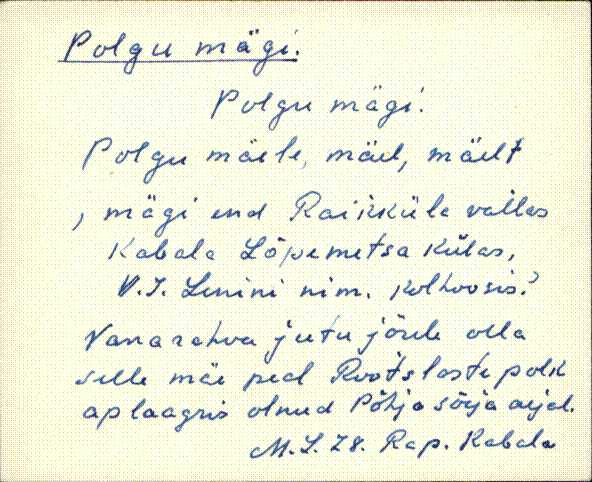 Polgu mägi.
Polgu mägi.
Polgu mäele, mäel, mäelt
, mägi end Raikküla vallas
Kabala Lõpemetsa külas,
V.I. Lenini nim. kolhoosis.?
Vanarahva jutu järele olla
selle mäe peal Rootslaste polk
aplaagris olnud Põhja sõja aejal.
M.L.28. Rap. Kabala